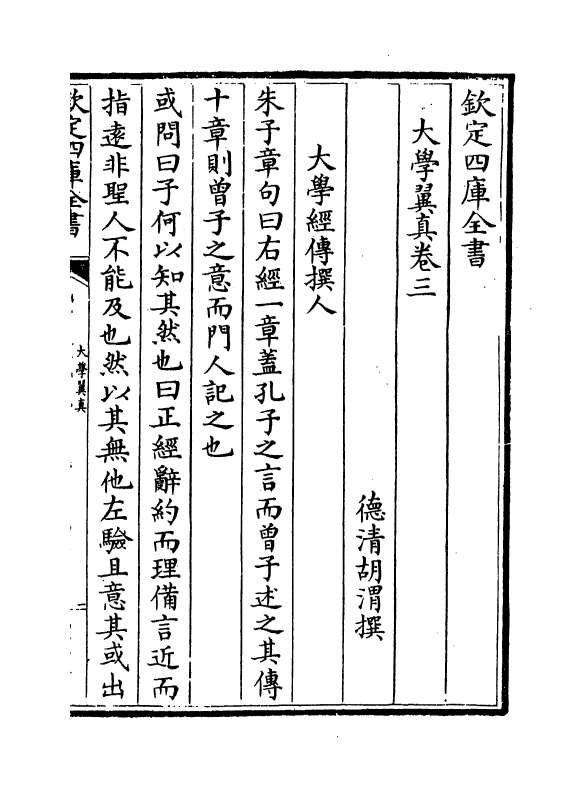 欽定四庫全書
大學翼真卷三
德清胡渭撰
大學經傳撰人
朱子章句曰右經一章蓋孔子之言而曾子述之其傳
十章則曾子之意而門人記之也
或問曰子何以知其然也曰正經辭約而理備言近而
指遠非聖人不能及也然以其無他左驗且意其或出
欽定四庫全書
大學翼真